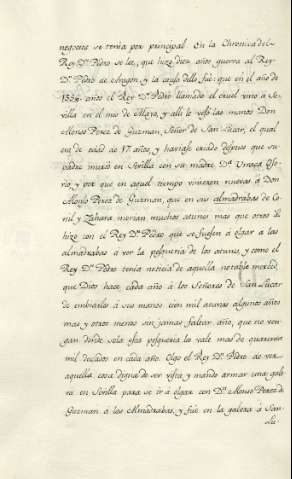 negocios se tenia por principal. En la Chronica del
Rey Dn. Pedro se lee, que hizo diez años guerra al Rey
Dn. Pedro de Aragon, y la causa dello fue: que en el año de
años el Rey Dn. Pedro llamado el cruel vino à Se-
villa en el mes de Mayo, y alli le besò las manos Don
Alonso Perez de Guzman, Señor de San Lucar, el qual
era de edad de 17 años, y haviase criado despues que su
padre murio en Sevilla con su madre Dª Urraca Oso-
rio, y por que en aquel tiempo vinieron nuevas à Don
Alonso Perez de Guzman, que en sus almadrabas de Co-
nil y Zahara morian muchos atunes mas que otros
hizo con el Rey Dn. Pedro que se fuesen à olgar à las
almadrabas à ver la pesqueria de los atunes, y como el
Rey Dn. Pedro tenia noticia de aquella notable merced,
que Dios hace cada año à los Señores de San Lucar
de embiarles à sus manos cien mil atunes algunos años
mas y otros menos sin jamas faltar año, que no ven-
gan donde sola esta pesqueria la vale mas de quarenta
mil ducados en cada año. olgo el Rey Dn. Pedro de ver
aquella cosa digna de ser vista y mando armar una gale-
ra en Sevilla para se ir à olgar con Dn. Alonso Perez de
Guzman à las Almadrabas, y fue en la galera à San-
lu-